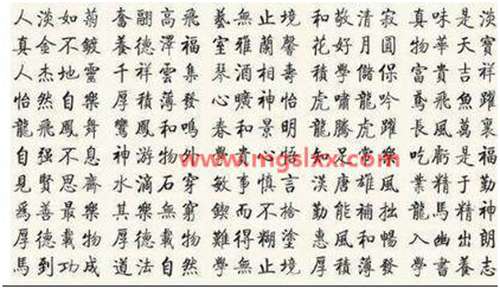 人淡如菊 奮翮高飛 藝無止境 和敬清寂 真味是淡
真金不鍍 養德澤福 室雅蘭馨 花好月圓 物華天寶
人杰地靈 千祥雲集 琴酒相壽 積學儲保 富貴吉祥
怡然自樂 厚積薄發 心曠神怡 虎嘯龍吟 鳶飛魚躍
龍飛鳳舞 鸞鳳和鳴 春和景明 龍騰虎躍 長風萬裹
自强不息 神游物外 知足常樂 吃虧是福
www.mgslxx.com
見賢思齊 水滴石穿 敏事慎言 漢唐雄風 業精于勤
爲善最樂 其樂無窮 鍥而不捨 勤能補拙 龍馬精神
厚德載物 厚德載物 難得糊塗 惠風和暢 入幽出朗
馬到功成 道法自然 學無止境 厚積薄發 學書養志